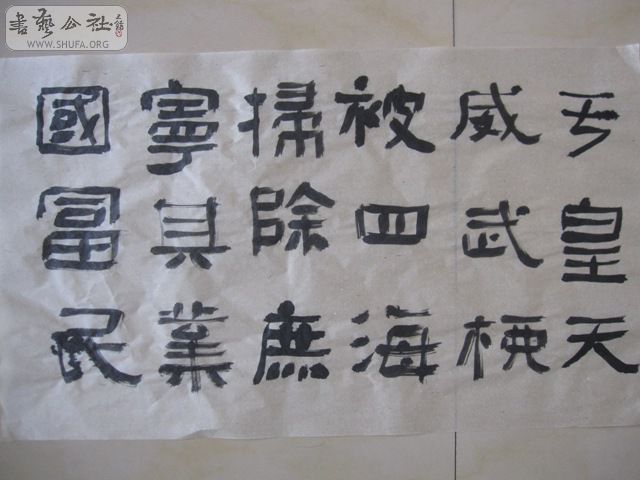 書藝公社
WWW.SHUFA.ORG
于皇天
威武梗
被四海
掃除庶
寧其業
國富民